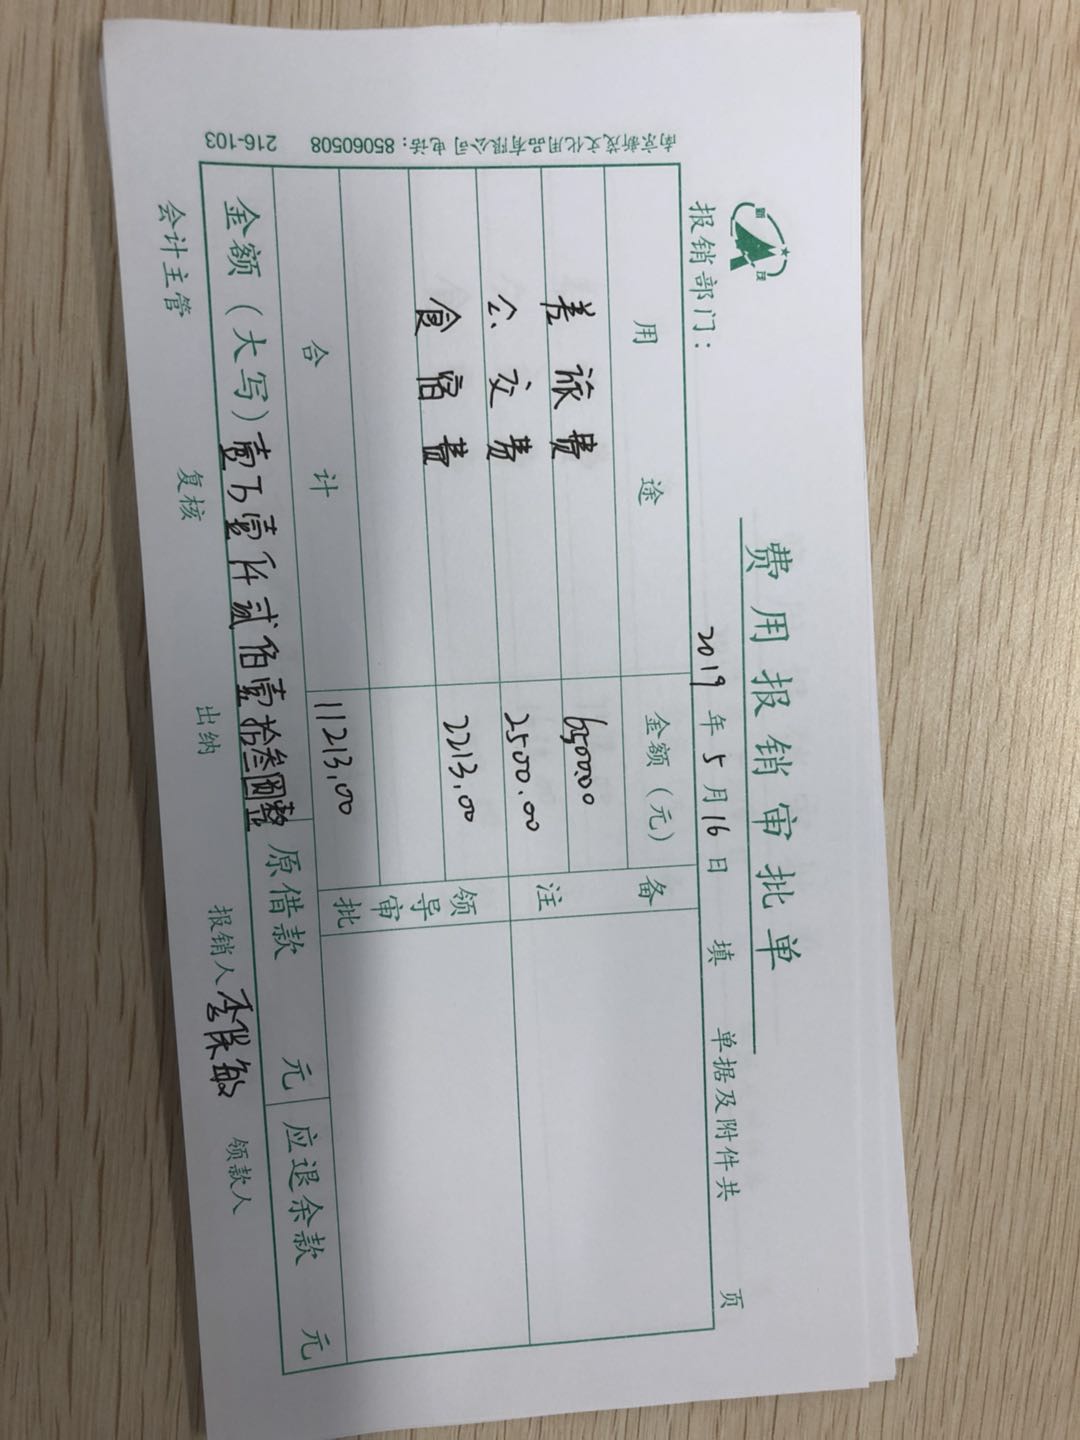 费用报销审批单
报销部门： 2019年5月16日 填 单据及附件共 页
用途 金额（元） 备注
差旅费 6500.00
公交费 2500.00
食宿费 2213.00
领导审批
合计 11213.00
金额（大写）壹万壹仟贰佰壹拾叁圆整 原借款 元 应退余款 元
会计主管 复核 出纳 报销人 李保敏 领款人
216-103 电话：85060508